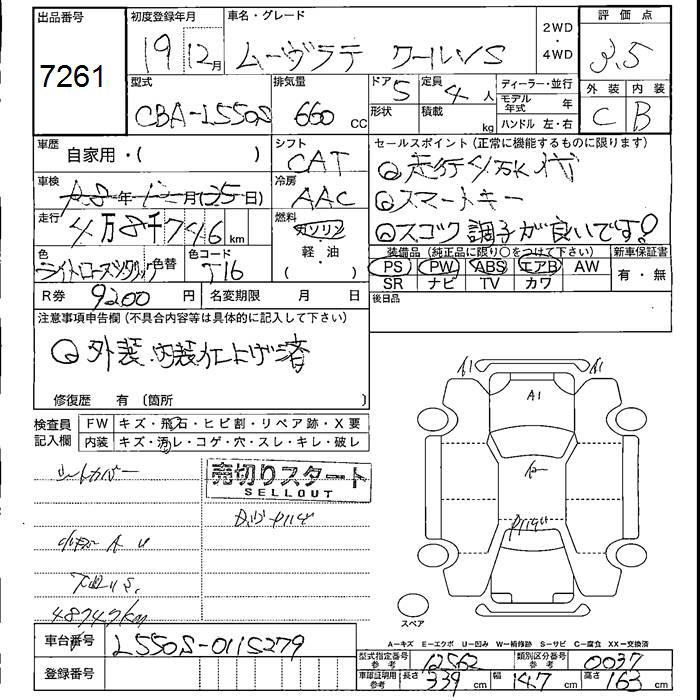 出品番号
7261
初度登録年月
19 12月
車名・グレード
ムーヴラテ クールVS
2WD
・
4WD
評価点
3.5
外装 内装
C B
型式
CBA-L550S
排気量
660 cc
ドア 5
形状
定員 4 人
積載 kg
ディーラー・並行
モデル年式 年
ハンドル 左・右
車歴
自家用・( )
シフト
CAT
セールスポイント (正常に機能するものに限ります)
走行4万K代
スマートキー
スゴク調子が良いです!
車検
年 月( 日)
冷房
AAC
走行
4万8千746 km
燃料
ガソリン
・
軽・油
( )
色
色替
色コード
T16
装備品 (純正品に限り○をつけて下さい)
PS PW ABS エアB AW
SR ナビ TV カワ
新車保証書
有・無
R券 9200 円
名変期限 月 日
後日品
注意事項申告欄 (不具合内容等は具体的に記入して下さい)
外装、内装仕上げ済
修復歴 有 (箇所 )
検査員記入欄
FW キズ・飛石・ヒビ割・リペア跡・X要
内装 キズ・汚れ・コゲ・穴・スレ・キレ・破レ
シートカバー
売切りスタート
SELLOUT
48747km
A1 A1
A1
スペア
A=キズ E=エクボ U=凹み W=補修跡 S=サビ C=腐食 XX=交換済
車台番号 L550S-0115279
登録番号
型式指定番号 参考 12562
類別区分番号 参考 0037
車庫証明用 参考 長さ 339 cm 幅 147 cm 高さ 163 cm